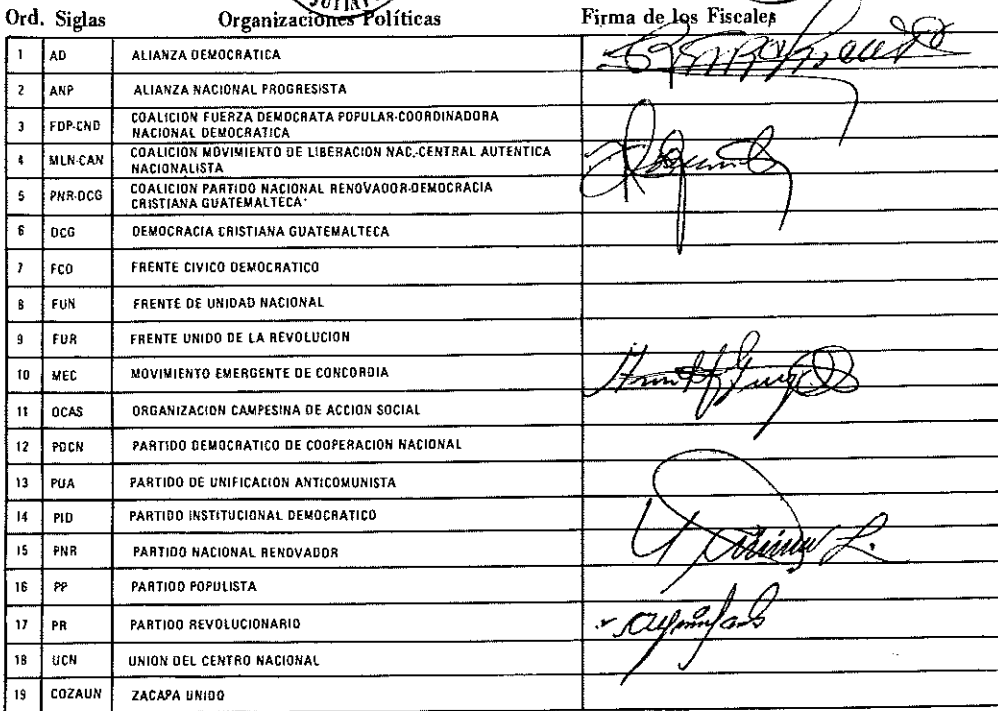 JUTIA
Ord. Siglas Organizaciones Políticas Firma de los Fiscales
1 AD ALIANZA DEMOCRATICA
2 ANP ALIANZA NACIONAL PROGRESISTA
3 FDP-CND COALICION FUERZA DEMOCRATA POPULAR-COORDINADORA
NACIONAL DEMOCRATICA
4 MLN-CAN COALICION MOVIMIENTO DE LIBERACION NAC.-CENTRAL AUTENTICA
NACIONALISTA
5 PNR-DCG COALICION PARTIDO NACIONAL RENOVADOR-DEMOCRACIA
CRISTIANA GUATEMALTECA
6 DCG DEMOCRACIA CRISTIANA GUATEMALTECA
7 FCD FRENTE CIVICO DEMOCRATICO
8 FUN FRENTE DE UNIDAD NACIONAL
9 FUR FRENTE UNIDO DE LA REVOLUCION
10 MEC MOVIMIENTO EMERGENTE DE CONCORDIA
11 OCAS ORGANIZACION CAMPESINA DE ACCION SOCIAL
12 PDCN PARTIDO DEMOCRATICO DE COOPERACION NACIONAL
13 PUA PARTIDO DE UNIFICACION ANTICOMUNISTA
14 PID PARTIDO INSTITUCIONAL DEMOCRATICO
15 PNR PARTIDO NACIONAL RENOVADOR
16 PP PARTIDO POPULISTA
17 PR PARTIDO REVOLUCIONARIO
18 UCN UNION DEL CENTRO NACIONAL
19 COZAUN ZACAPA UNIDO